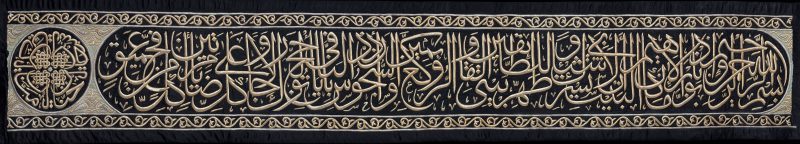 بسم الله الرحمن الرحيم وإذ بوأنا لإبراهيم مكان البيت أن لا تشرك بي شيئا وطهر بيتي للطائفين والقائمين والركع السجود وأذن في الناس بالحج يأتوك رجالا وعلى كل ضامر يأتين من كل فج عميق